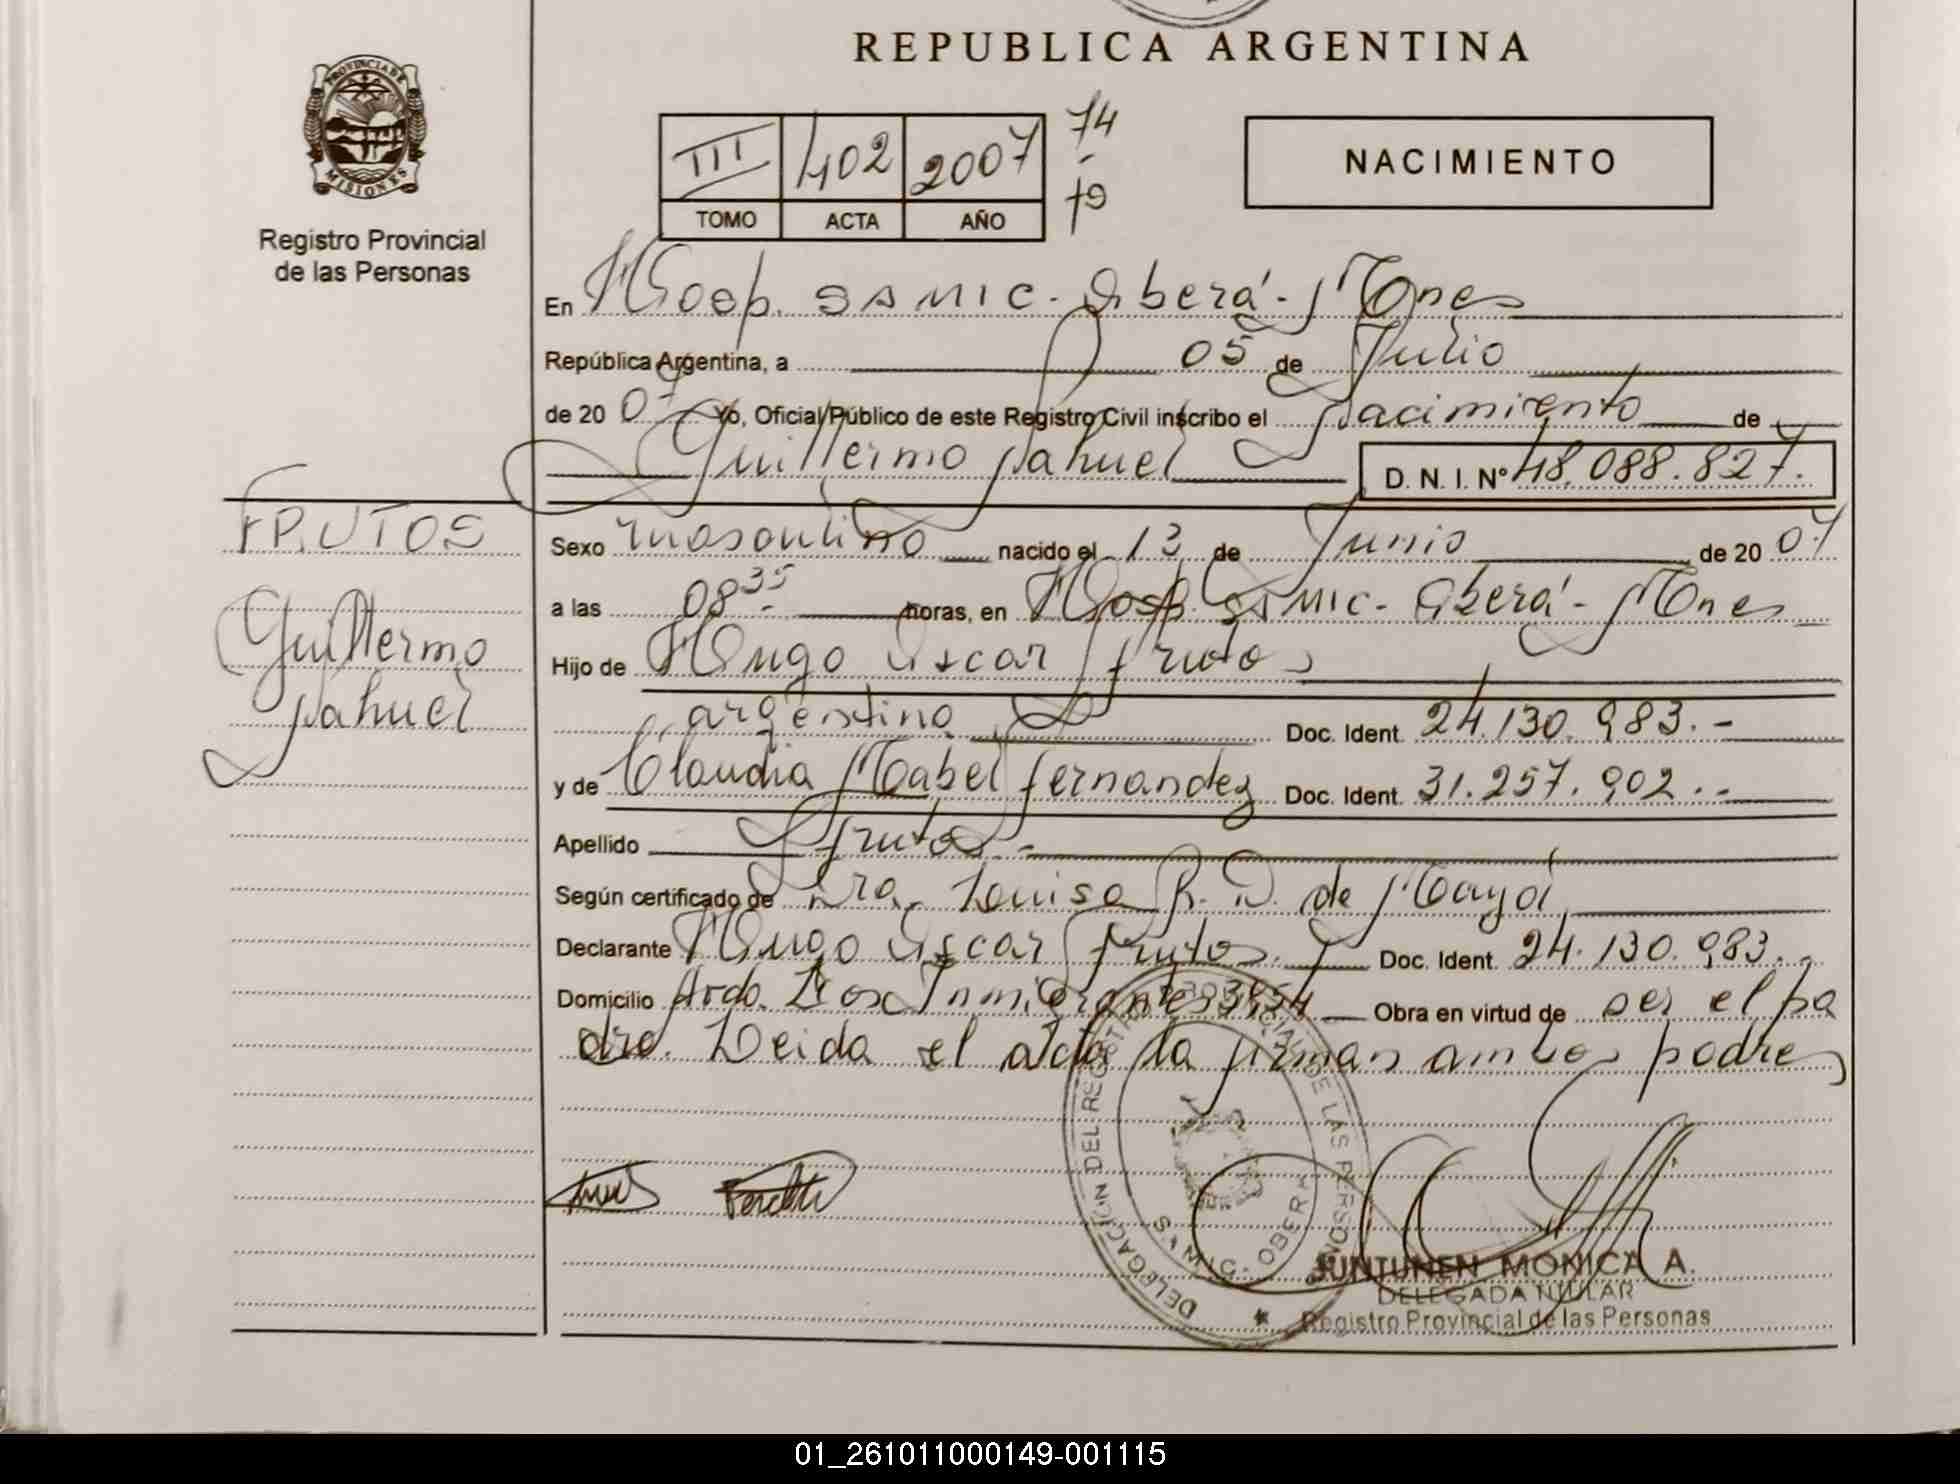 REPUBLICA ARGENTINA
PROVINCIA DE
MISIONES
Registro Provincial
de las Personas
III 402 2007 74
-
79
TOMO ACTA AÑO
NACIMIENTO
En Hosp. SAMIC - Oberá - Mnes
República Argentina, a 05 de Julio
de 20 07 Yo, Oficial Público de este Registro Civil inscribo el Nacimiento de
Guillermo Nahuel D. N. I. Nº 48.088.827.
FRUTOS
Guillermo
Nahuel
Sexo masculino nacido el 13 de Junio de 20 07
a las 08 35 horas, en Hosp. SAMIC - Oberá - Mnes
Hijo de Hugo Oscar Frutos
argentino Doc. Ident. 24.130.983.-
y de Claudia Mabel Fernandez Doc. Ident. 31.257.902.-
Apellido Frutos -
Según certificado de Dra. Luisa R. D. de
Declarante Hugo Oscar Frutos. Doc. Ident. 24.130.983.
Domicilio Avda. Los Inmigrantes 3954 Obra en virtud de ser el pa
dre. Leida el acta la firman ambos padres
DELEGACIÓN DEL REGISTRO PROVINCIAL DE LAS PERSONAS
SAMIC - OBERÁ
JUNTUNEN MONICA A.
DELEGADA TITULAR
Registro Provincial de las Personas
01_261011000149-001115